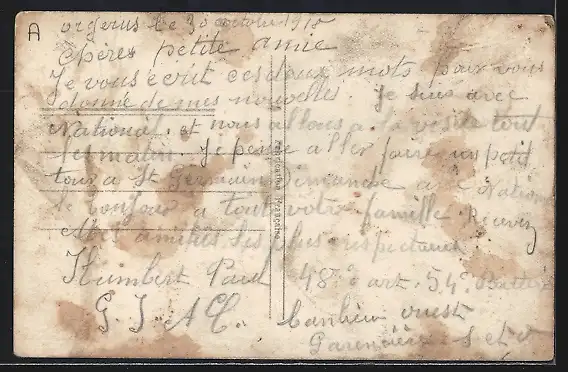 A
orgerus le 30 octobre 1918
Chères petite amie
Je vous ecrit ces deux mots pour vous
donné de mes nouvelles. Je suis avec
National, et nous allons a la visite tout
les matin. Je pense aller faire un petit
tour a St Germain Dimanche avec National
le bonjour a toute votre famille. Recevez
amitiés les plus respectueux
Humbert Paul 48e d'art. 54e Batterie
G. I. A. C. banlieu ouest
Garencières S et O